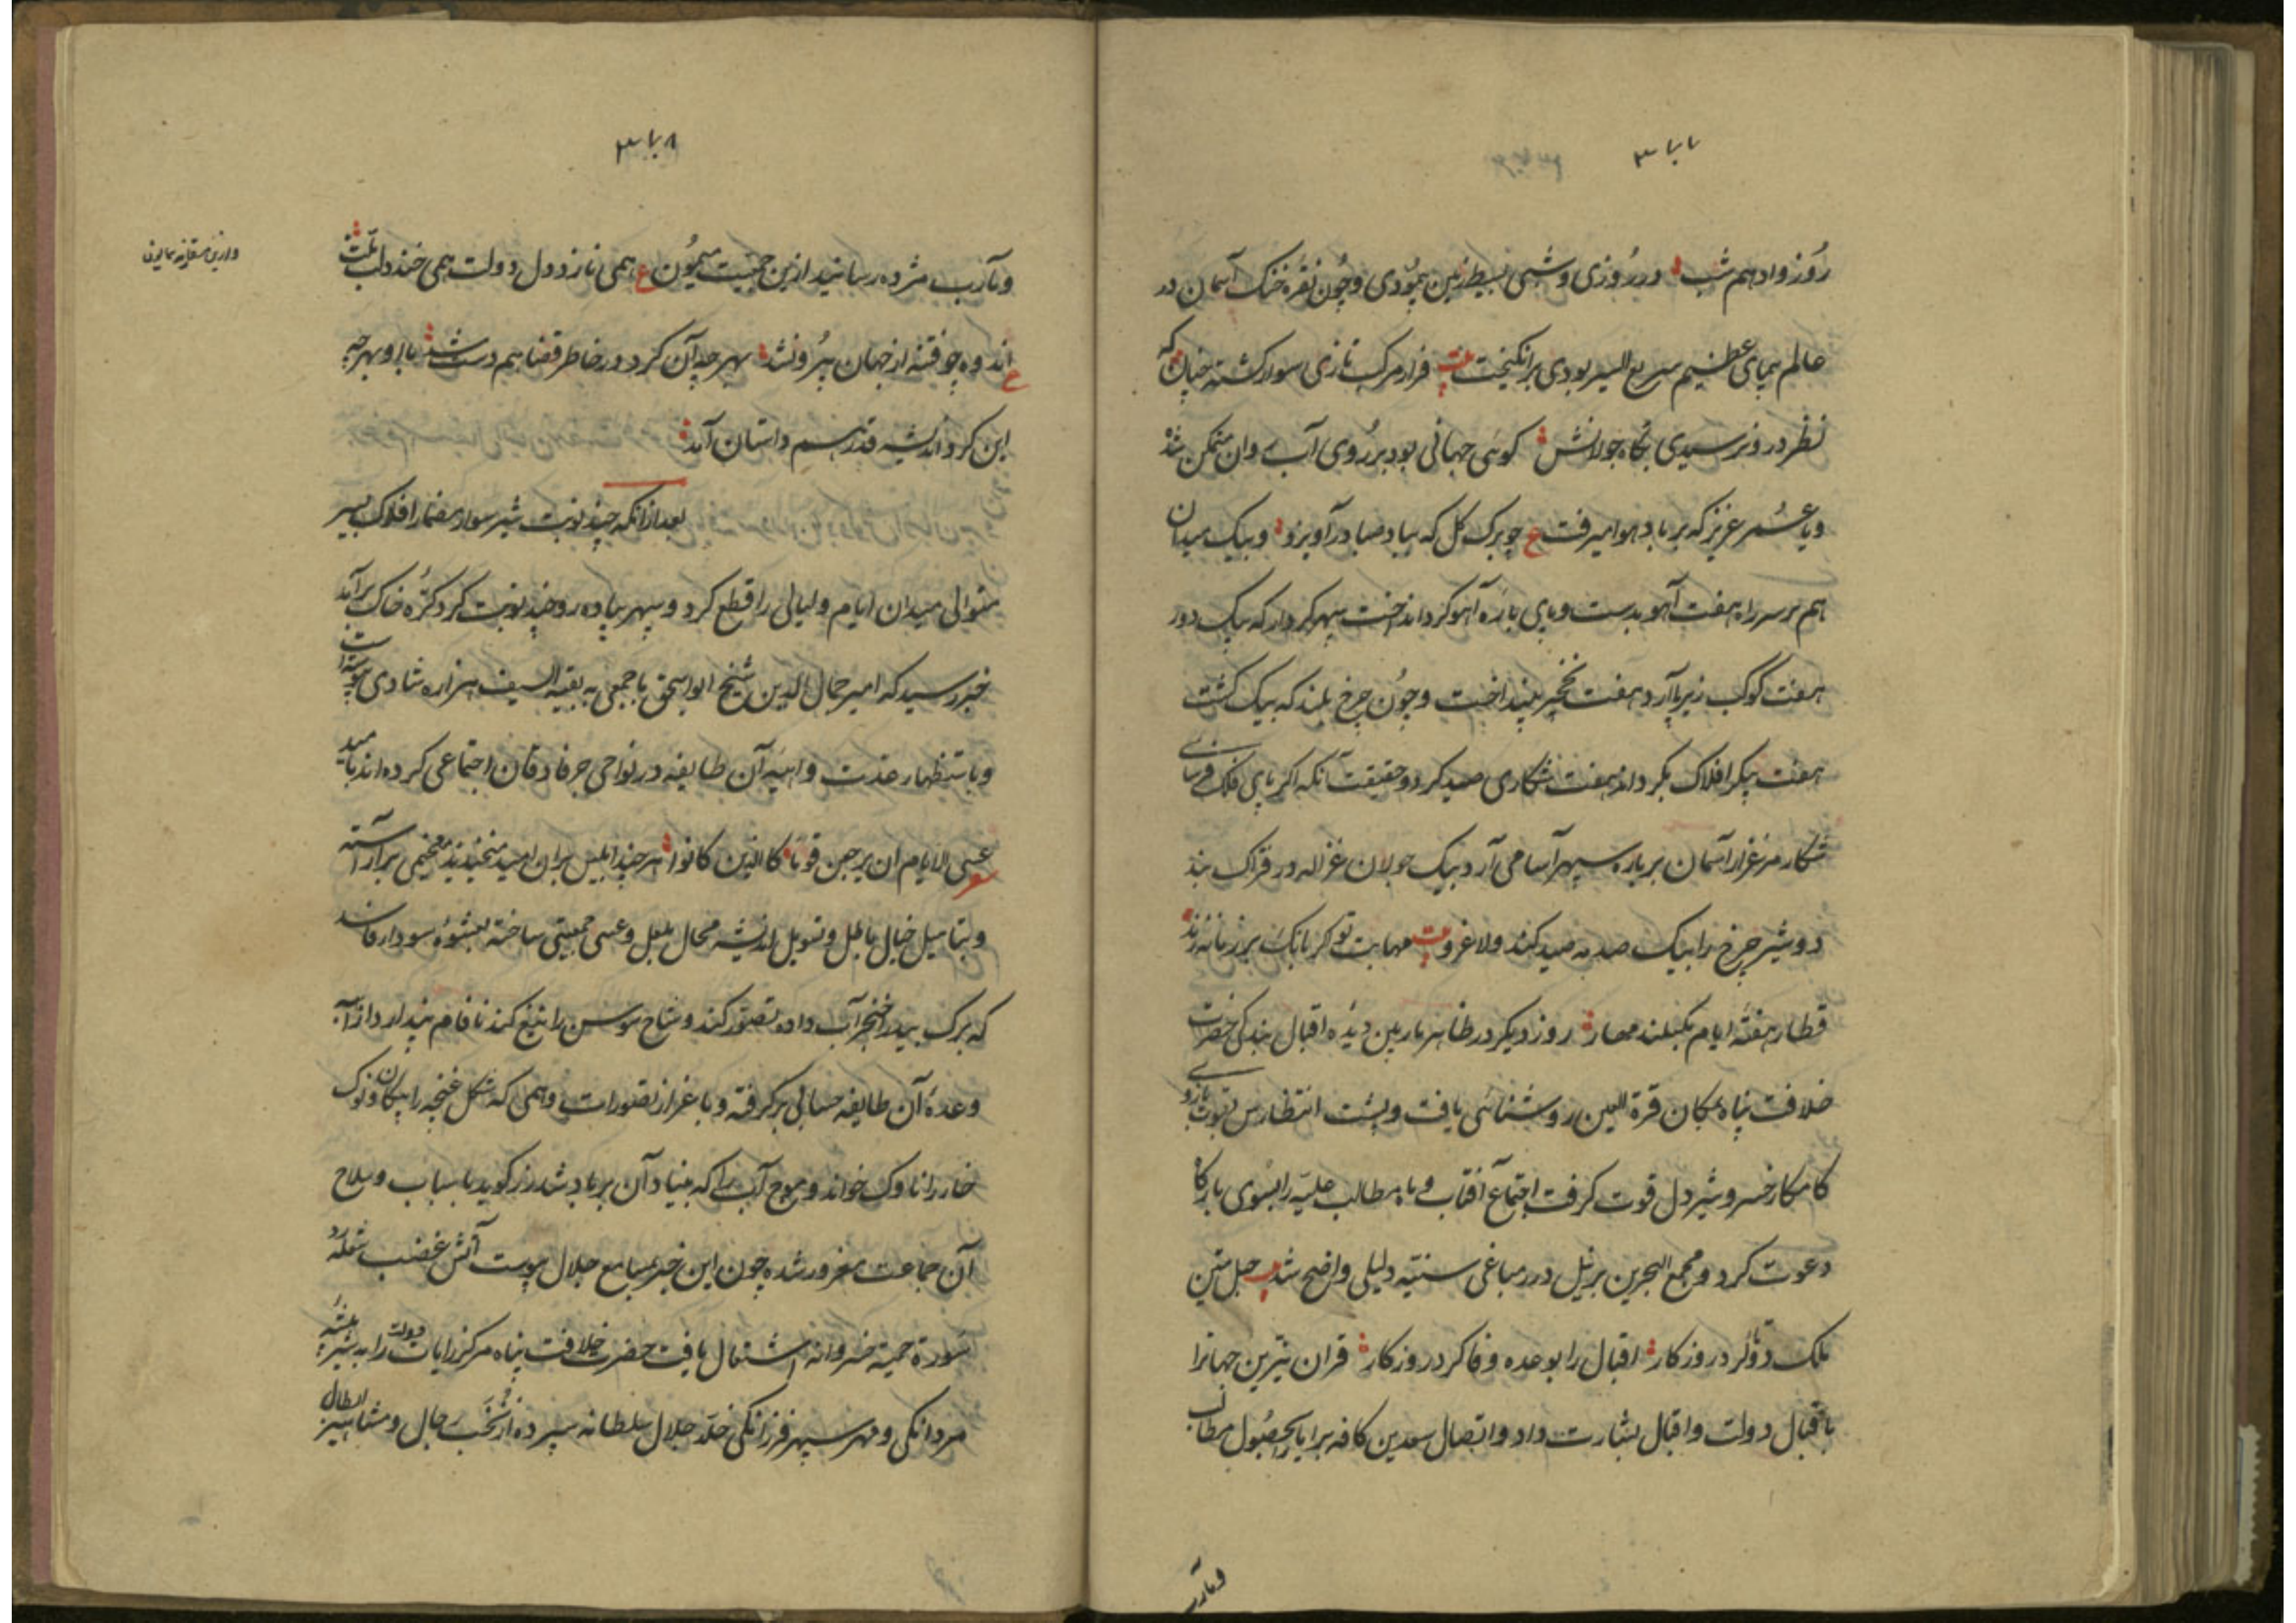 روز و ادهم شب در روزی و شبی بسیط زمین پیمودی و چون نقره خنک آسمان در
عالم پیمای عظیم سریع السیر بودی برانکیخت بیت فراز مرکب تازی سوار کشته چنان که
نظر درو نرسیدی بکاه جولانش کوئی جهانی بود بر روی آب وان متمکن شد
و یا عمر عزیز که بر باد هوا میرفت ع چو برک کل که بباد صبا درآویزد و بیک میدان
هم بر سر راه هفت آهو بدست و پای باره آهو کرد انداخت سپهر کردار که بیک دور
هفت کوکب زیر پا آرد هفت نخجیر بینداخت و چون چرخ بلند که بیک کشت
هفت پیکر افلاک بکرداند هفت شکاری صید کرد و حقیقت آنکه اکر پای فلک فرسای
شکار مرغزار آسمان بر باره سپهر آسا می آرد بیک جولان غزاله در فتراک بندد
دو شیر چرخ را بیک صدمه صید کند ولاغرو بیت مهابت تو کر بانک بر زمانه زند
قطار هفتهٔ ایام بکسلند مهار روز دیکر در ظاهر ماربین دیدهٔ اقبال بندکی حضرت
خلافت پناه بمکان قرة العین روشنائی یافت و پشت انتظارش بقوت بازوی
کامکار خسرو شیردل قوت کرفت اجتماع آفتاب و ماه مطالب علیه را بسوی بارکاه
دعوت کرد و مجمع البحرین بر نیل درر مباغی سنیه دلیلی واضح شد بیت حبل متین
ملک دوتا کرد روزکار اقبال را بوعده وفا کرد روزکار قران نیرین جهانرا
باقبال دولت و اقبال بشارت داد و اتصال سعدین کافه برایا را بحصول مطالب
و مآرب
و مآرب مژده رسانید ازین جمعیت میمون ع همی نازد دل دولت همی خندد لب ملت
اندوه چو فتنه از جهان بیرون شد سهر چه آن کرد در خاطر قضا هم دست شد با او بهرچه
این کرد اندیشه قدر هم داستان آمد
بعد از انکه چند نوبت شیر سوار مضمار افلاک بسیر
متوالی میدان ایام و لیالی را قطع کرد و سپهر پیاده رو چند نوبت کرد کرّه خاک برآمد
خبر رسید که امیر جمال الدین شیخ ابو اسحق با جمعی به بقیه السیف هزاره شادی پیوسته است
و باستظهار عدت واهیه آن طایفه در نواحی جرفادقان اجتماعی کرده اند بامید
عسی الایام ان یرجعن قوما کالذین کانوا هر چند ابلیس بران امید میخندید مخیمی برآراسته
و بتاسیل خیال باطل و تسویل اندیشه محال بلعل و عسی جمعیتی ساخته بعشوه سودا فاسد
که برک بید را خنجر آب داده تصور کند و شاخ سوسن را تیغ کند نافام پندارد از آب
وعدهٔ آن طایفه حسابی برکرفته و باغراز تصورات وهمی که شکل غنچه را پیکان و نوک
خار را ناوک خواند و موج آب را که بنیاد آن بر باد باشد زره کوید باسباب و سلاح
آن جماعت مغرور شده چون این خبر بمسامع جلال پیوست آتش غضب شعله زد
سورة حمیه خسروانه اشتعال یافت حضرت خلافت پناه مرکز رایات دولت را به شیر بیشه
مردانکی و مهر سپهر فرزانکی خلد جلال سلطانه سپرده از نخب رجال و مشاهیر ابطال